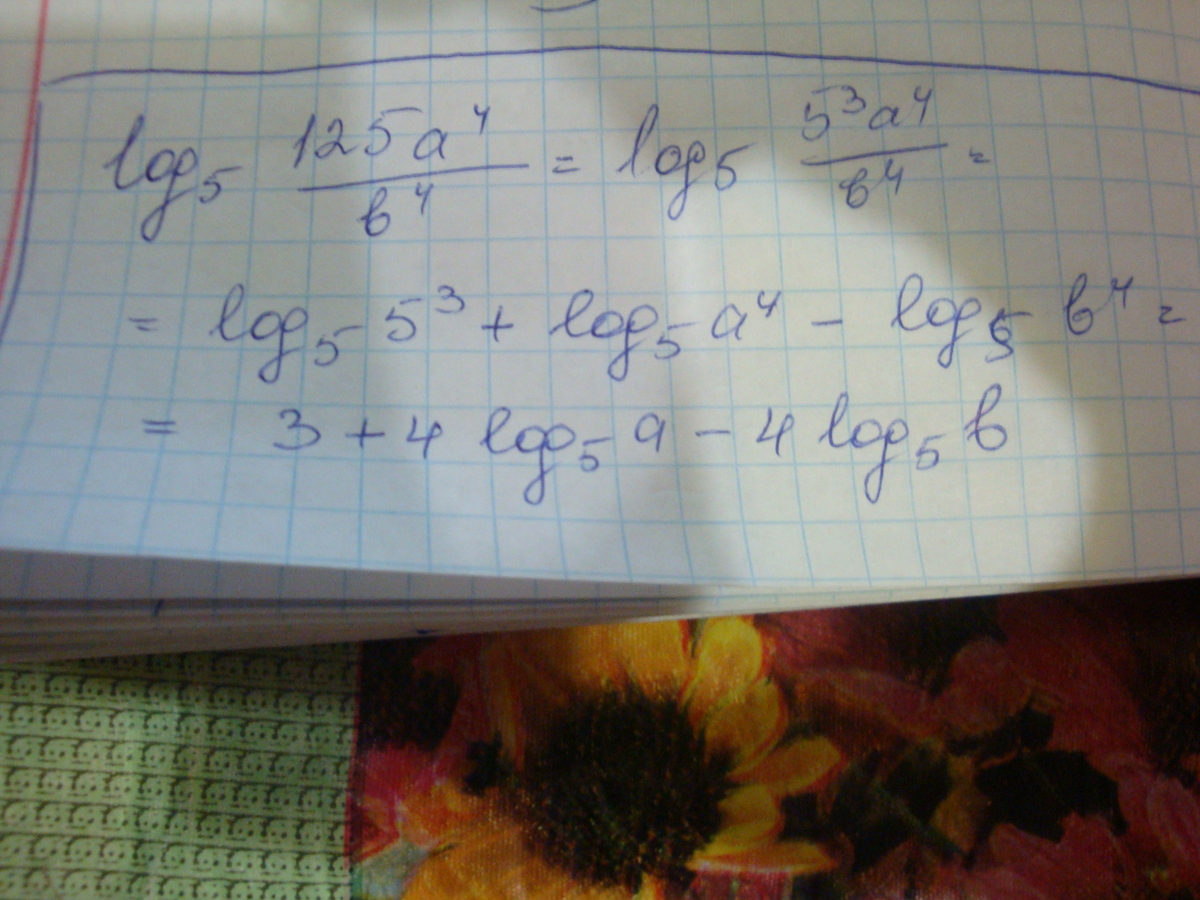 log₅ 125a⁴/b⁴ = log₅ 5³a⁴/b⁴ =
= log₅ 5³ + log₅ a⁴ - log₅ b⁴ =
= 3 + 4 log₅ a - 4 log₅ b